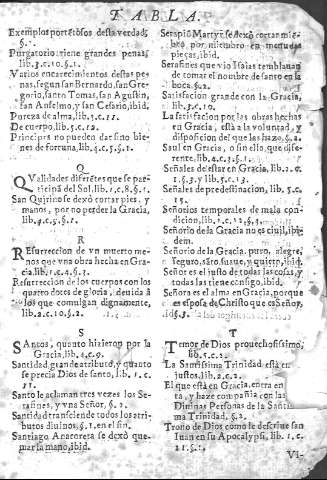 TABLA.
Exemplos portētosos desta verdad,
§.1.
Purgatorio tiene grandes penas,
lib.3.c.10.§.1.
Varios encarecimientos destas pe-
nas, segun san Bernardo, san Gre-
gorio, santo Tomas, san Agustin,
san Anselmo, y san Cesario, ibid.
Pureza de alma, lib.5.c.11.
De cuerpo, lib.5.c.12.
Principes no pueden dar sino bie-
nes de fortuna, lib.4.c.5.§.1.
Q
QValidades diferētes que se par-
ticipā del Sol, lib.1.c.8.§.1.
San Quirino se dexò cortar pies, y
manos, por no perder la Gracia,
lib.4.c.5.§.1.
R
REsurreccion de vn muerto me-
nos que vna obra hecha en Gra-
cia, lib.1.c.4.§.1.
Resurreccion de los cuerpos con los
quatro dotes de gloria, deuida à
los que comulgan dignamente,
lib.2.c.10.§.2.
S
SAntos, quanto hizieron por la
Gracia, lib.4.c.9.
Santidad, grande atributo, y quanto
se precia Dios de santo, lib.1.c.
11.
Santo le aclaman tres vezes los Se-
rafines, y vna Señor, §.2.
Santidad transciende todos los atri-
butos diuinos, §.1. en el fin.
Santiago Anacoreta se dexò que-
mar la mano, ibid.
Serapio Martyr se dexò cortar miē-
bro por miembro en menudas
pieças, ibid.
Serafines que vio Isaias temblauan
de tomar el nombre de santo en la
boca, §.2.
Satisfacion grande con la Gracia,
lib.3.c.10.
La satisfacion por las obras hechas
en Gracia, està a la voluntad, y
disposicion del que las haze, §.2.
Saul en Gracia, o sin ello, que dife-
rente, lib.4.c.3.§.1.
Señales de estar en Gracia, lib.2.c.
1.§.3. y lib.5.c.13.
Señales de predestinacion, lib.5.c.
15.
Señorios temporales de mala con-
dicion, lib.1.c.12.§.4.
Señorio de la Gracia no es ciuil, ibi-
dem.
Señorio de la Gracia, puro, alegre,
seguro, santo, suaue, y quieto, ibid.
Señor es el justo de todas las cosas, y
todas las tiene consigo, ibid.
Señora es el alma en Gracia, porque
es esposa de Christo que es Señor,
T
TEmor de Dios prouechosissimo,
lib.5.c.2.
La Santissima Trinidad està en
justos, lib.2.c.2.
El que està en Gracia, entra en
ta, y haze compañia con las
Diuinas Personas de la Santis
ma Trinidad, §.2.
Trono de Dios como le describe san
Iuan en su Apocalypsi, lib.1.c.
11.§.1.
Vi-